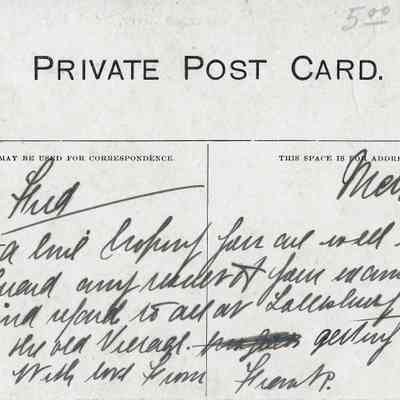 5.00
PRIVATE POST CARD.
MAY BE USED FOR CORRESPONDENCE.
THIS SPACE IS FOR ADDRE
Fred
a line hoping you are well
heard any of your exam
kind regards to all at
the old Village. getting
With love From Frank.